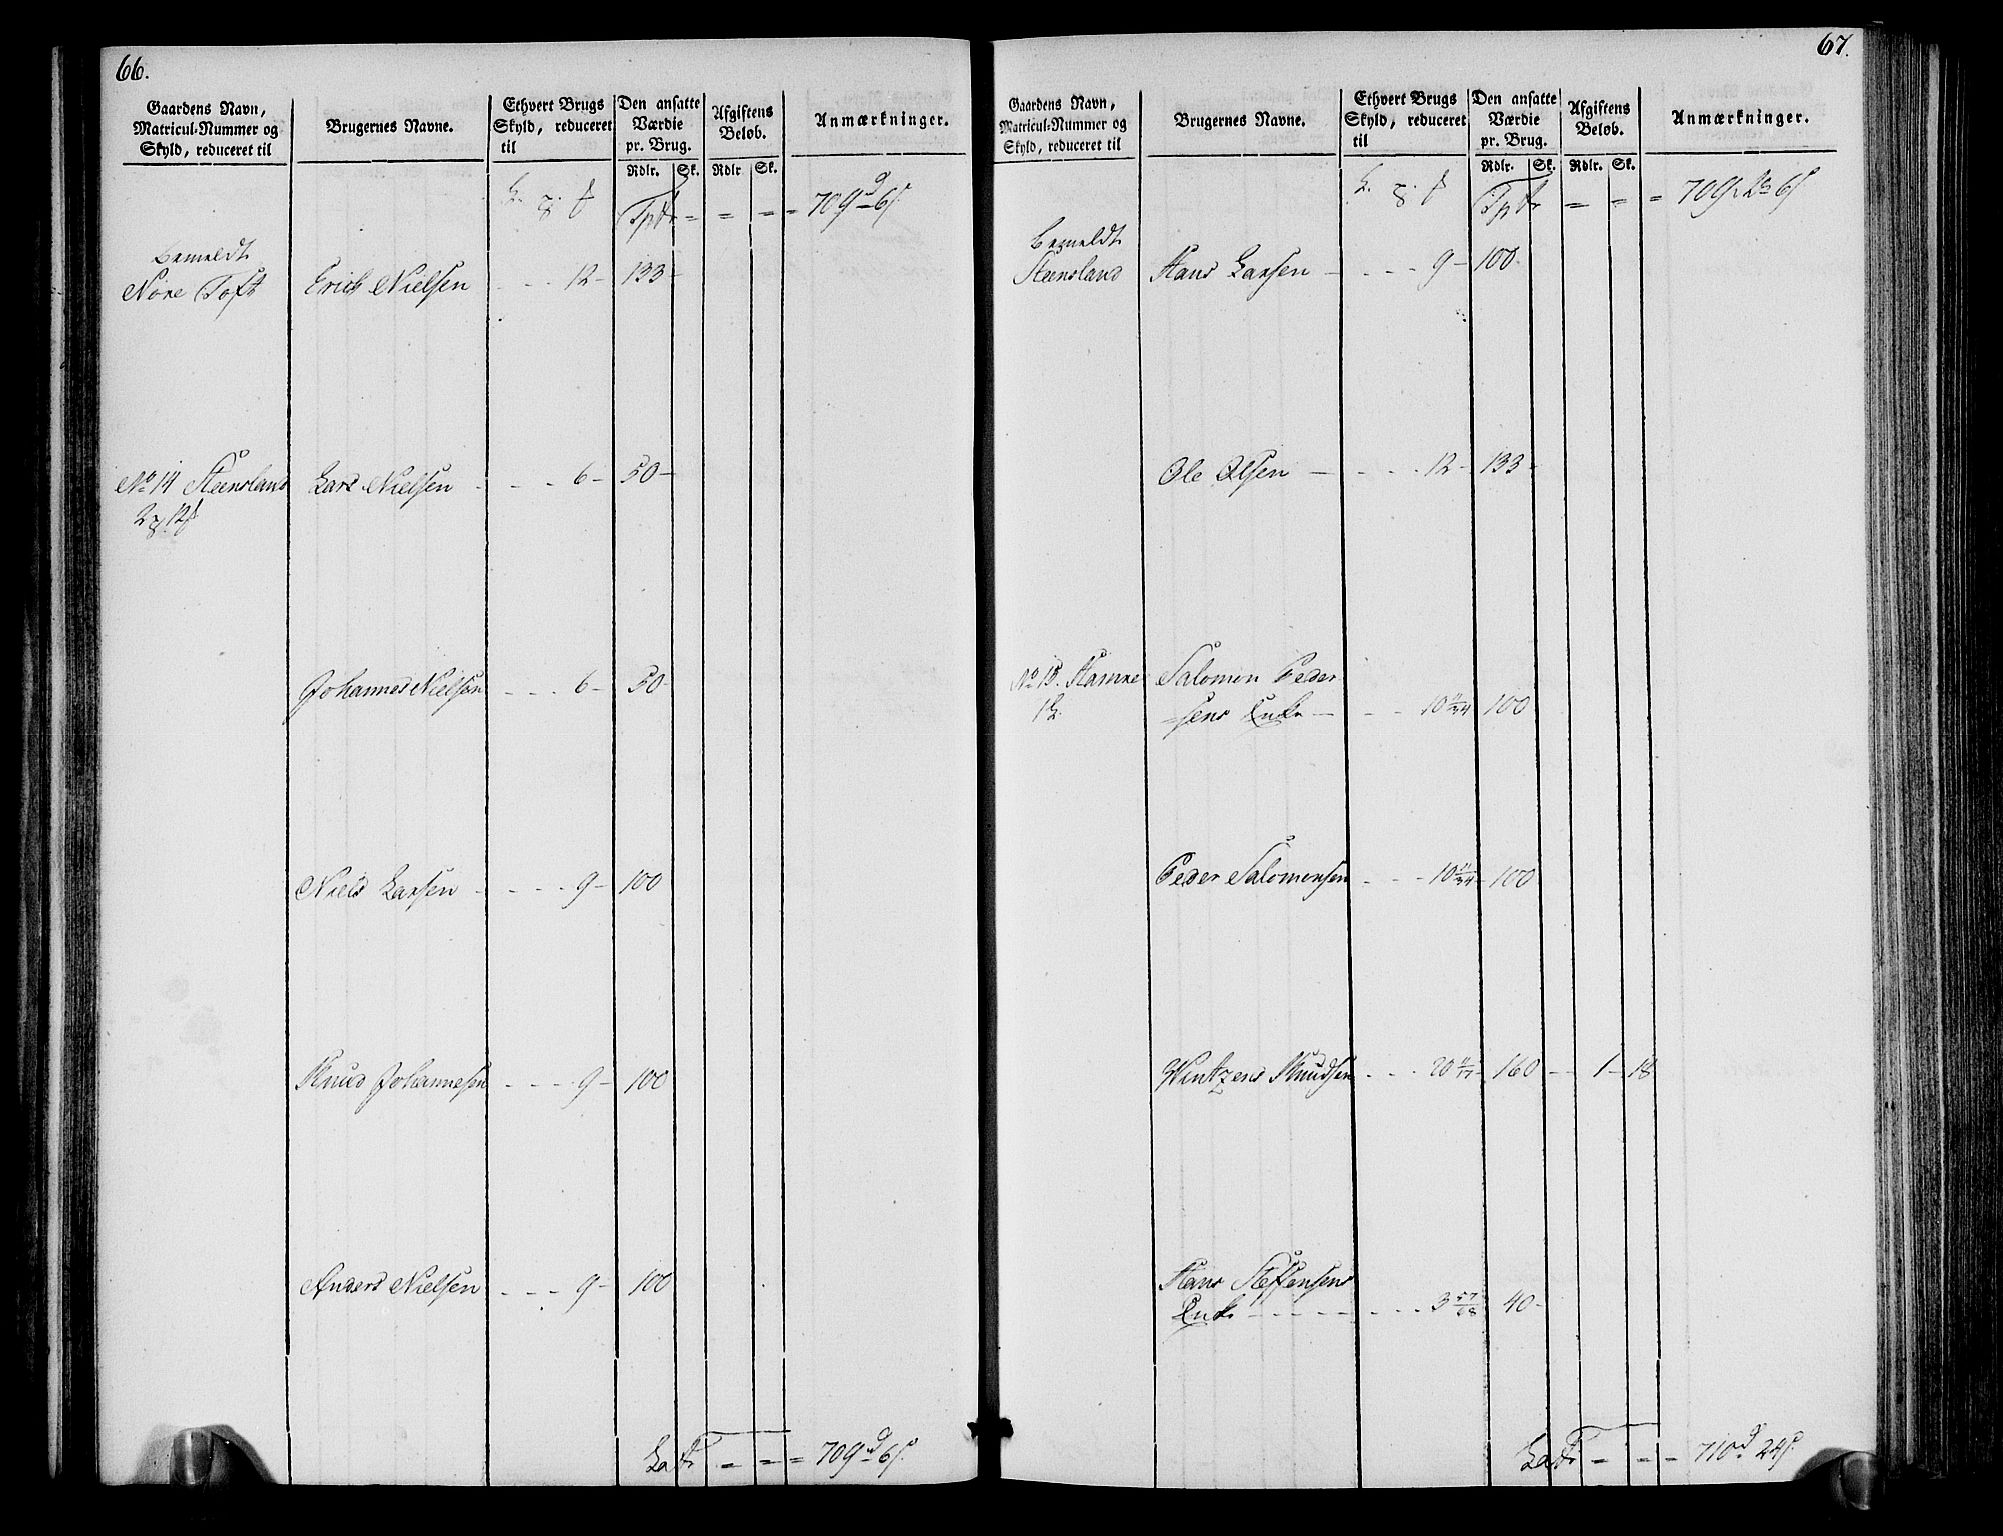 66.
Gaardens Navn, Matricul-Nummer og Skyld, reduceret til
Brugernes Navne.
Ethvert Brugs Skyld, reduceret til
Den ansatte Værdie pr. Brug.
Afgiftens Beløb.
Anmærkninger.
Rdlr. Sk. Rdlr. Sk.
Tptr = = = = 709 d 6 s
Bemeldt
Nore Toft Erich Nielsen - - - 12 - 133 -
No 14 Steensland Lars Nielsen - - - 6 - 50 -
Johannes Nielsen - - - 6 - 50 -
Niels Larsen - - - - 9 - 100
Knud Johannesen - - - 9 - 100
Anders Nielsen - - - 9 - 100
Latr = = = 709 d 6 s.
67.
Gaardens Navn, Matricul-Nummer og Skyld, reduceret til
Brugernes Navne.
Ethvert Brugs Skyld, reduceret til
Den ansatte Værdie pr. Brug.
Afgiftens Beløb.
Anmærkninger.
Rdlr. Sk. Rdlr. Sk.
Tptr = = = 709 d 6 s
Bemeldt
Steensland Hans Larsen - - - - 9 - 100
Ole Olsen - - - - 12 - 133 -
No 15. Hamre Salomon Peder
sens Enke - - - 10 100
Peder Salomonsen - - - 10 - 100
Wintzens Knudsen - - - 20 - 160 - 1 - 18
Hans Steffensens
Enke - - - - - - - 3 57/68 40 -
Latr = = = 710 d 24 s.